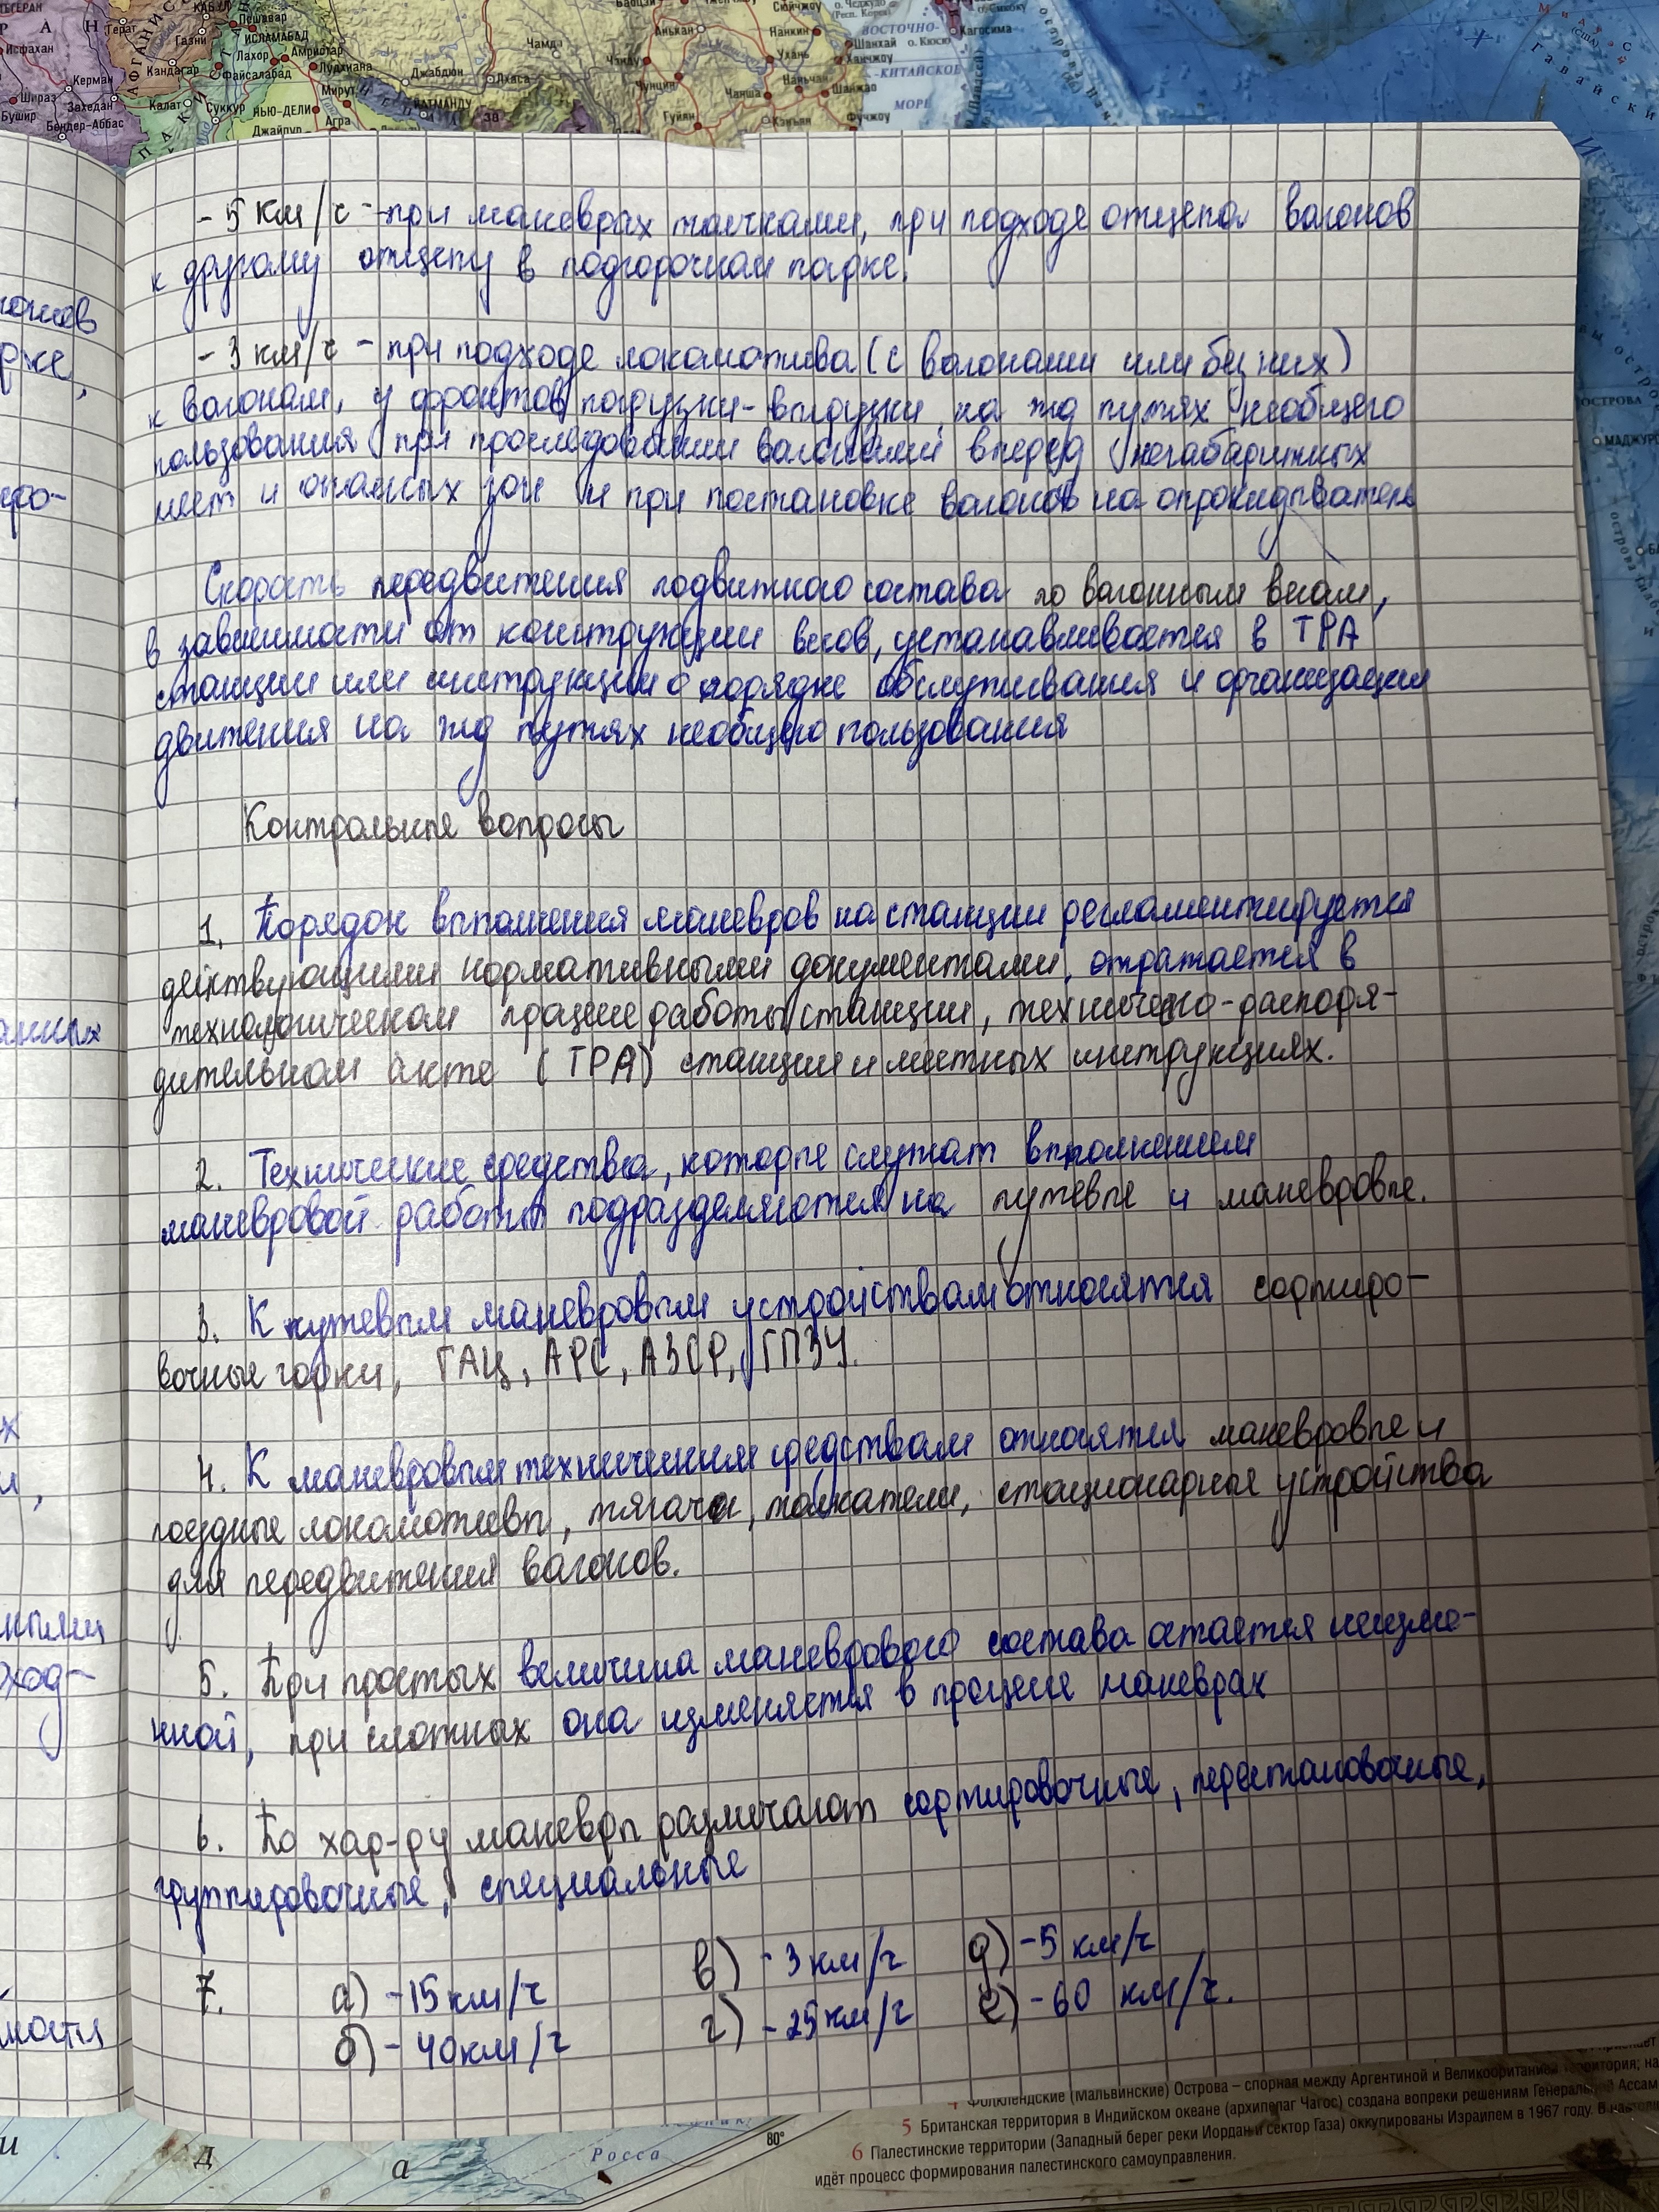 ТЕГЕРАН
КАБУЛ
Пешавар
Исфахан
Герат
Газни
ИСЛАМАБАД
Лахор
Амритсар
Кандагар
Файсалабад
Лудхиана
Керман
Шираз
Захедан
Калат
Суккур
НЬЮ-ДЕЛИ
Мирут
Бушир
Бендер-Аббас
Джайпур
Агра
КАТМАНДУ
Чамдо
Джабдюн
Лхаса
Анькан
Нанкин
Сюйчжоу
о. Чеджудо
(Респ. Корея)
ВОСТОЧНО-
КИТАЙСКОЕ
МОРЕ
Шанхай
о. Кюсю
Кагосима
Ханчжоу
Чэнду
Ухань
Чунцин
Наньчан
Чанша
Шанжао
Гуйян
Фучжоу
- 5 км/ч - при маневрах толчками, при подходе отцепа вагонов
к другому отцепу в подгорочном парке.
- 3 км/ч - при подходе локомотива (с вагонами или без них)
к вагонам, у фронтов погрузки-выгрузки на жд путях необщего
пользования при проследовании вагонами вперед негабаритных
мест и опасных зон и при постановке вагонов на опрокидыватель
Скорость передвижения подвижного состава по вагонным весам,
в зависимости от конструкции весов, устанавливается в ТРА
станции или инструкции о порядке обслуживания и организации
движения на жд путях необщего пользования
Контрольные вопросы
1. Порядок выполнения маневров на станции регламентируется
действующими нормативными документами, отражается в
технологическом процессе работы станции, техническо-распоря-
дительном акте (ТРА) станции и местных инструкциях.
2. Технические средства, которые служат выполнением
маневровой работы подразделяются на путевые и маневровые.
3. К путевым маневровым устройствам относятся сортиро-
вочные горки, ГАЦ, АРС, АЗСР, ГПЗУ.
4. К маневровым техническим средствам относятся маневровые и
поездные локомотивы, тягачи, толкатели, стационарные устройства
для передвижения вагонов.
5. При простых величина маневрового состава остается неизме-
нной, при сложных она изменяется в процессе маневрах
6. По хар-ру маневры различают сортировочные, перестановочные,
группировочные, специальные
7. а) - 15 км/ч в) - 3 км/ч д) - 5 км/ч
б) - 40 км/ч г) - 25 км/ч е) - 60 км/ч.
4 Фолклендские (Мальвинские) Острова – спорная между Аргентиной и Великобританией территория;
5 Британская территория в Индийском океане (архипелаг Чагос) создана вопреки решениям
6 Палестинские территории (Западный берег реки Иордан и сектор Газа) оккупированы Израилем в 1967 году.
идёт процесс формирования палестинского самоуправления.
Росса
80°
и д а